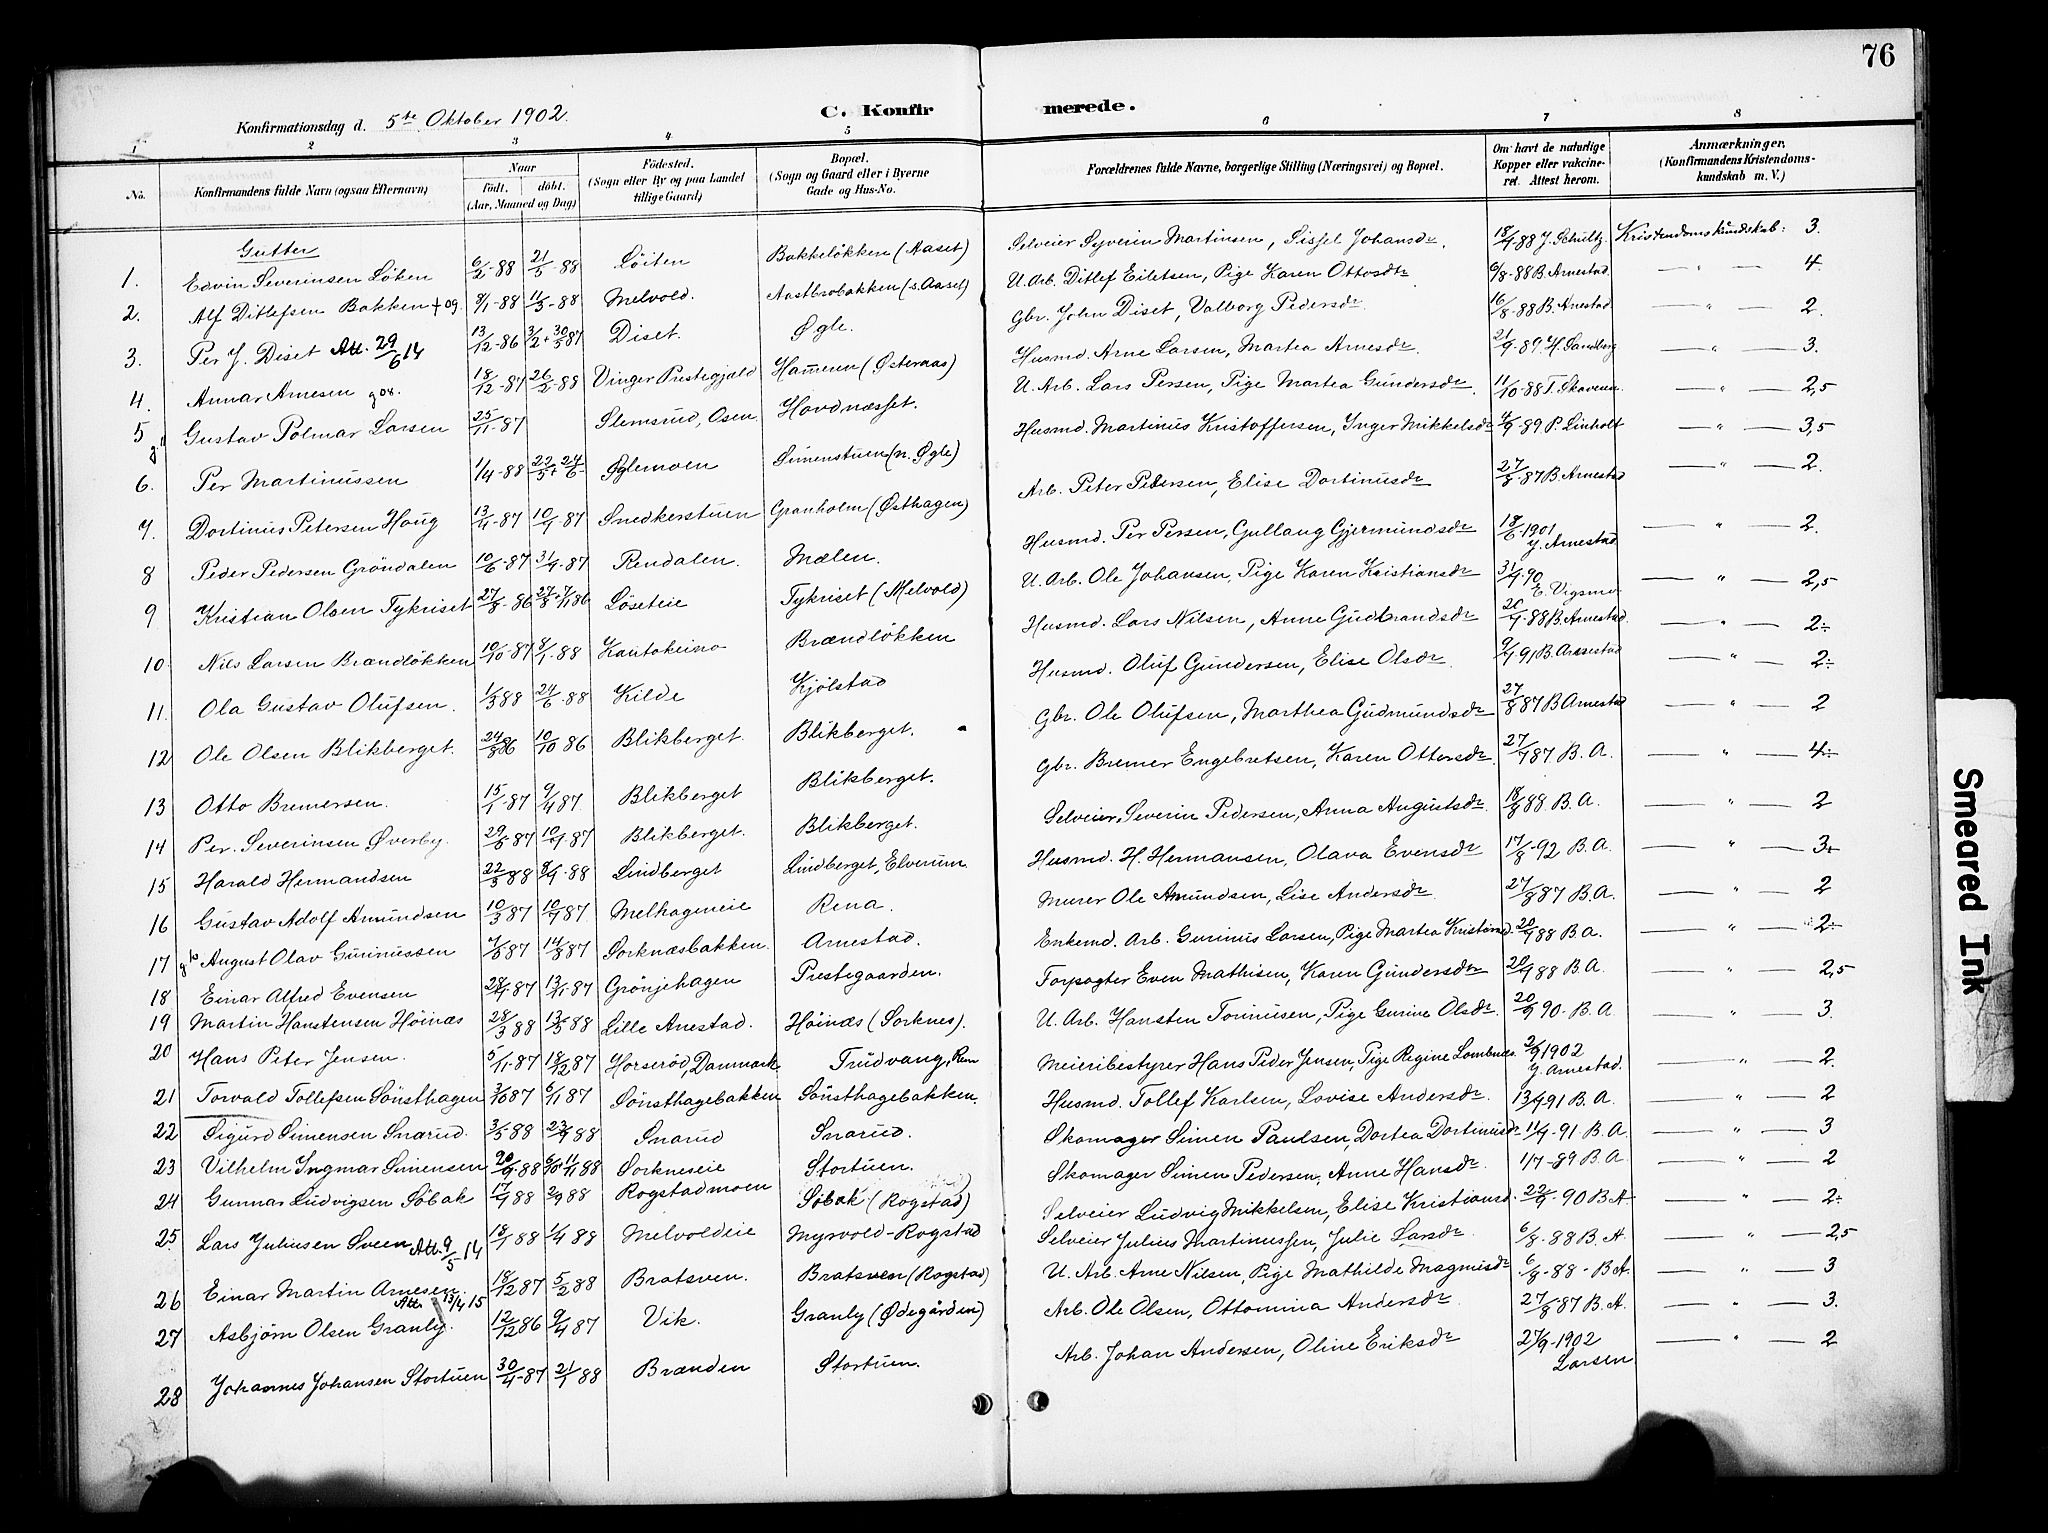 76
C. Konfir merede.
Konfirmationsdag d. 5te Oktober 1902.
1 2 3 4 5 6 7 8
No. Konfirmandens fulde Navn (ogsaa Efternavn) Naar født. døbt. (Aar, Maaned og Dag) Fødested. (Sogn eller By og paa Landet tillige Gaard) Bopæl. (Sogn og Gaard eller i Byerne Gade og Hus-No. Forældrenes fulde Navne, borgerlige Stilling (Næringsvei) og Bopæl. Om havt de naturlige Kopper eller vakcineret. Attest herom. Anmærkninger. (Konfirmandens Kristendomskundskab m. V.)
Gutter
1. Edvin Severinsen Löken 6/2-88 21/5-88 Löiten Bakkelökken (Aaset) Selveier Syverin Martinsen, Sissel Johansdr. 18/9-88 J. Schultz Kristendomskundskab: 3.
2. Alf Ditlefsen Bakken + og 8/1-88 11/3-88 Melvold. Aastbrobakken (s. Aaset) U. Arb. Ditlef Eiletsen, Pige Karen Ottosdr 6/8-88 B. Arnestad — " — 4.
3. Per J. Diset Att. 29/6 14 13/12-86 3/2 + 30/5 87 Diset. Øgle. Gbr. John Diset, Valborg Pedersdr 16/8-88 B. Arnestad — " — 2.
4. Annar Arnesen 18/12-87 26/2-88 Vinger Prestegjæld Hameren (Østeraas) Husmd. Arne Larsen, Martea Arnesdr. 21/9-89. H. Sandberg — " — 3.
5 Gustav Polmar Larsen 25/11-87 Slemsrud, Osen Hovdnæsset. U. Arb. Lars Persen, Pige Martea Gundersdr 11/10-88 T. Skaveren — " — 2,5
6. Per Martinussen 1/4-88 22/5 + 24/6- Øglemoen Simenstuen (n. Øgle) Husmd. Martinus Kristoffersen, Inger Mikkelsdr 4/9-89 P. Linholt — " — 3,5
7. Dortinus Petersen Houg 13/4-87 10/7-87 Snedkerstuen Granholm (Østhagen) Arb. Peter Petersen, Elise Dortinusdr 27/8-87 B. Arnestad — " — 2.
8 Peder Pedersen Gröndalen 10/6-87 31/7-87 Rendalen. Mælen. Husmd. Per Persen, Gullaug Gjermundsdr 18/6-1901 J. Arnestad — " — 2.
9 Kristian Olsen Tykriset 27/8-86 27/8 + 7/11 86 Löseteie Tykriset (Melvold) U. Arb. Ole Johansen, Pige Karen Kristiansdr 31/7-90 E. Vigsmo — " — 2,5
10. Nils Larsen Brændlökken 10/10-87 8/1-88 Kautokeino Brændlökken Husmd. Lars Nilsen, Anne Gudbrandsdr 20/7-88 B. Arnestad — " — 2÷
11. Ola Gustav Olufsen. 1/3 88 24/6-88 Kilde Kjølstad Husmd. Oluf Gundersen, Elise Olsdr. 9/9 91 B. Arnestad — " — 2÷
12 Ole Olsen Blikberget. 24/8 86 10/10 86 Blikberget. Blikberget. Gbr. Ole Olufsen, Marthea Gudmundsdr 27/8 87 B Arnestad — " — 2
13 Otto Bremersen. 15/1-87 9/4 87. Blikberget Blikberget. Gbr. Bremer Engebretsen, Karen Ottersdr. 27/7 87 B. A. — " — 4÷
14 Per. Severinsen Øverby. 29/5 87 10/7-87 Blikberget. Blikberget. Selveier, Severin Pedersen, Anna Augustsdr. 18/8 88 B. A. — " — 2
15 Harald Hermandsen 22/3 88 8/7-88 Lindberget Lindberget, Elverum Husmd. H. Hermansen, Olava Evensdr 17/8-92 B. A. — " — 3÷
16 Gustav Adolf Amundsen 10/3 87 10/7 87 Melhageneie Rena. Murer Ole Amundsen, Lise Andersdr. 27/8 87 B. A. — " — 2
17 August Olav Gurinussen 7/5 87 14/8 87 Sorknæsbakken. Arnestad. Enkemd. Arb. Gurinus Larsen, Pige Martea Kristiansd. 20/7 88 B. A. — " — 2÷
18 Einar Alfred Evensen 28/9-87 13/11-87 Grönjehagen Prestegaarden. Forpagter Even Mathisen, Karen Gundersdr 20/7 88 B. A. — " — 2,5
19 Martin Hanstensen Höinæs 28/3 88 13/5 88 Lille Arnestad. Höinæs (Sorknes). U. Arb. Hansten Torinusen, Pige Gurine Olsdr. 20/9 90. B. A — " — 3.
20 Hans Peter Jensen. 5/11-87 18/12 87 Horserød, Danmark Trudvang, Rena Meieribestyrer Hans Peder Jensen, Pige Regine Lombnæs. 2/9 1902 J. Arnestad. — " — 2.
21 Torvald Tollefsen Sönsthagen 3/10 87 6/11 87 Sönsthagebakken Sönsthagebakken. Husmd. Tollef Karlsen, Lovise Andersdr. 13/9 91 B. A. — " — 2
22 Sigurd Simensen Snarud. 3/5 88 23/9 88 Snarud Snarud. Skomager Simen Paulsen, Dortea Dortinusdr 11/9-91 B. A. — " — 3
23 Vilhelm Ingmar Simensen 20/9-88 6/10 11/11 88 Sorkneseie Stortuen. Skomager Simen Pedersen, Anne Hansdr. 1/7-89 B. A. — " — 2
24 Gunnar Ludvigsen Söbak 17/7 88 2/9 88 Rogstadmoen Söbak (Rogstad) Selveier Ludvig Mikkelsen, Elise Kristiansd. 22/9-90 B. A. — " — 2÷
25. Lars Juliusen Sveen Att. 9/5-14 18/1 88 1/4 88 Melvoldeie Myrvold-Rogstad Selveier Julius Martinussen, Julie Larsdr. 6/8-88 B. A. — " — 2,5
26 Einar Martin Arnesen 18/12 87 5/2 88 Bratsven. Bratsven (Rogstad) U. Arb. Arne Nilsen, Pige Mathilde Magnusdr 6/8-88-B A. — " — 3
27 Asbjørn Olsen Granly. Att. 13/4 15 12/12 86 9/4 87 Vik. Granly (Ødegården) Arb. Ole Olsen, Ottomina Andersdr. 27/8 87 B. A. — " — 3.
28 Johannes Johansen Stortuen 30/4-87 21/1 88 Brænden Stortuen. Arb. Johan Andersen, Oline Eriksdr 27/9-1902 Larsen — " — 2
Smeared Ink